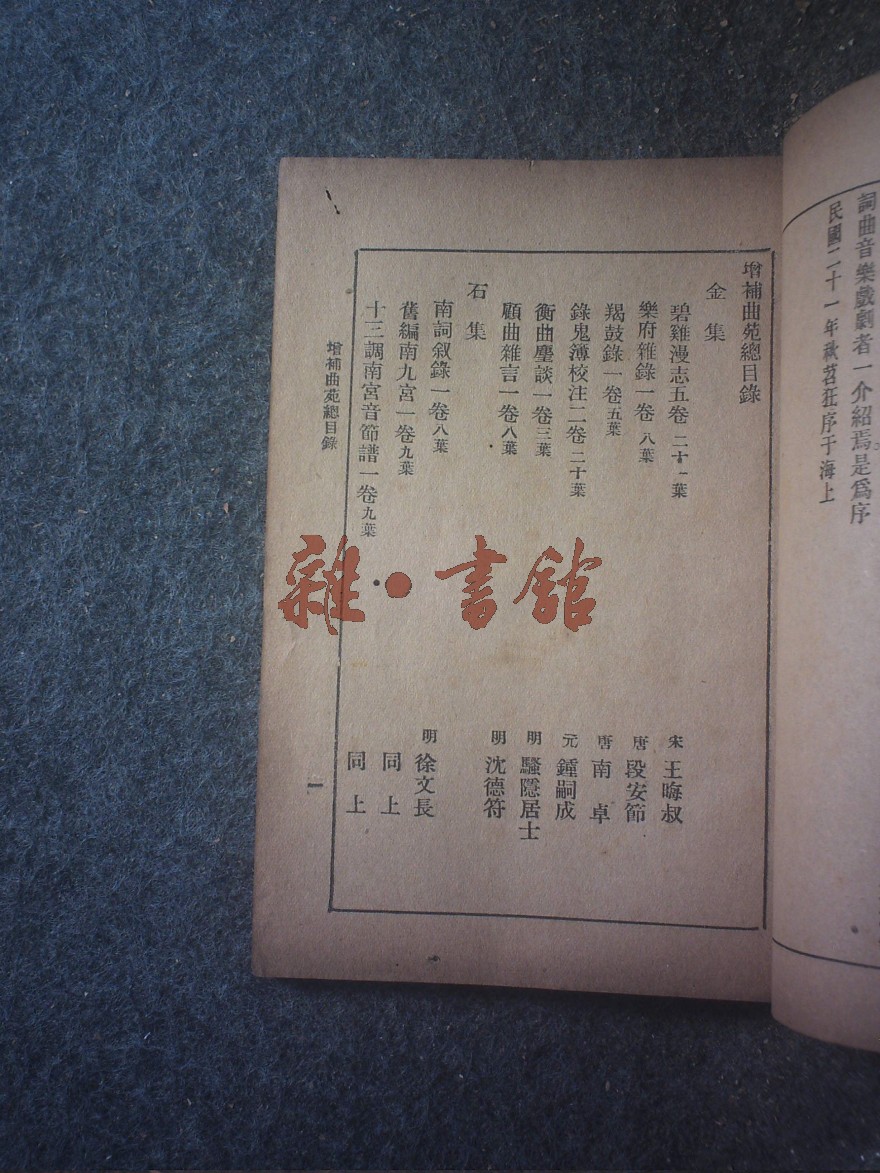 詞曲音樂戲劇者一介紹焉是爲序
民國二十一年秋苕狂序于海上
增補曲苑總目錄
金集
碧雞漫志五卷二十一葉 宋 王晦叔
樂府雜錄一卷八葉 唐 段安節
羯鼓錄一卷五葉 唐 南卓
錄鬼薄校注二卷二十葉 元 鍾嗣成
衡曲麈談一卷三葉 明 騷隱居士
顧曲雜言一卷八葉 明 沈德符
石集
南詞叙錄一卷八葉 明 徐文長
舊編南九宮一卷九葉 同上
十三調南宮音節譜一卷九葉 同上
增補曲苑總目錄
一
雜·書館